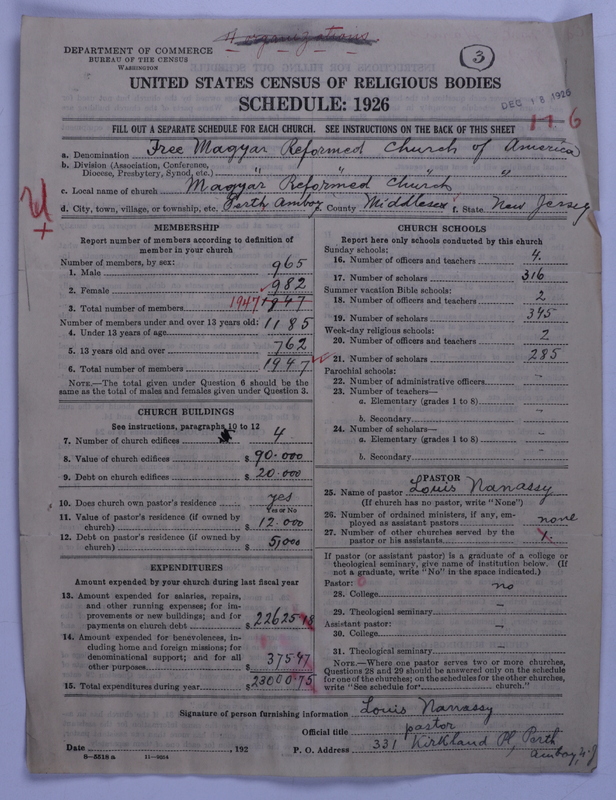 organizations
DEPARTMENT OF COMMERCE
BUREAU OF THE CENSUS
WASHINGTON
3
UNITED STATES CENSUS OF RELIGIOUS BODIES
SCHEDULE: 1926
DEC 18 1926
FILL OUT A SEPARATE SCHEDULE FOR EACH CHURCH. SEE INSTRUCTIONS ON THE BACK OF THIS SHEET
11 6
a. Denomination Free Magyar Reformed Church of America
b. Division (Association, Conference,
Diocese, Presbytery, Synod, etc.) " " " "
c. Local name of church Magyar Reformed Church
d. City, town, village, or township, etc. Perth Amboy e. County Middlesex f. State New Jersey
MEMBERSHIP
Report number of members according to definition of
member in your church
Number of members, by sex:
1. Male 965
2. Female 982
3. Total number of members 1947 1947
Number of members under and over 13 years old:
4. Under 13 years of age 1185
5. 13 years old and over 762
6. Total number of members 1947
NOTE.—The total given under Question 6 should be the
same as the total of males and females given under Question 3.
CHURCH BUILDINGS
See instructions, paragraphs 10 to 12
7. Number of church edifices 4
8. Value of church edifices $ 90.000
9. Debt on church edifices $ 20.000
10. Does church own pastor's residence yes
Yes or No
11. Value of pastor's residence (if owned by
church) $ 12.000
12. Debt on pastor's residence (if owned by
church) $ 5,000
EXPENDITURES
Amount expended by your church during last fiscal year
13. Amount expended for salaries, repairs,
and other running expenses; for im-
provements or new buildings; and for
payments on church debt $ 22625 18
14. Amount expended for benevolences, in-
cluding home and foreign missions; for
denominational support; and for all
other purposes $ 375 47
15. Total expenditures during year $ 23000 75
CHURCH SCHOOLS
Report here only schools conducted by this church
Sunday schools:
16. Number of officers and teachers 4.
17. Number of scholars 316
Summer vacation Bible schools:
18. Number of officers and teachers 2
19. Number of scholars 345
Week-day religious schools:
20. Number of officers and teachers 2
21. Number of scholars 285
Parochial schools:
22. Number of administrative officers –
23. Number of teachers—
a. Elementary (grades 1 to 8) –
b. Secondary –
24. Number of scholars—
a. Elementary (grades 1 to 8) –
b. Secondary –
PASTOR
25. Name of pastor Louis Nanassy
(If church has no pastor, write "None")
26. Number of ordained ministers, if any, em-
ployed as assistant pastors none
27. Number of other churches served by the
pastor or his assistants 1.
If pastor (or assistant pastor) is a graduate of a college or
theological seminary, give name of institution below. (If
not a graduate, write "No" in the space indicated.)
Pastor:
28. College no
29. Theological seminary –
Assistant pastor:
30. College –
31. Theological seminary –
NOTE.—Where one pastor serves two or more churches,
Questions 28 and 29 should be answered only on the schedule
for one of the churches; on the schedules for the other churches,
write "See schedule for church."
Signature of person furnishing information Louis Nanassy
Official title pastor
Date , 192 P. O. Address 331 Kirkland Pl, Perth
Amboy, N.J
8—5518 a 11—9024